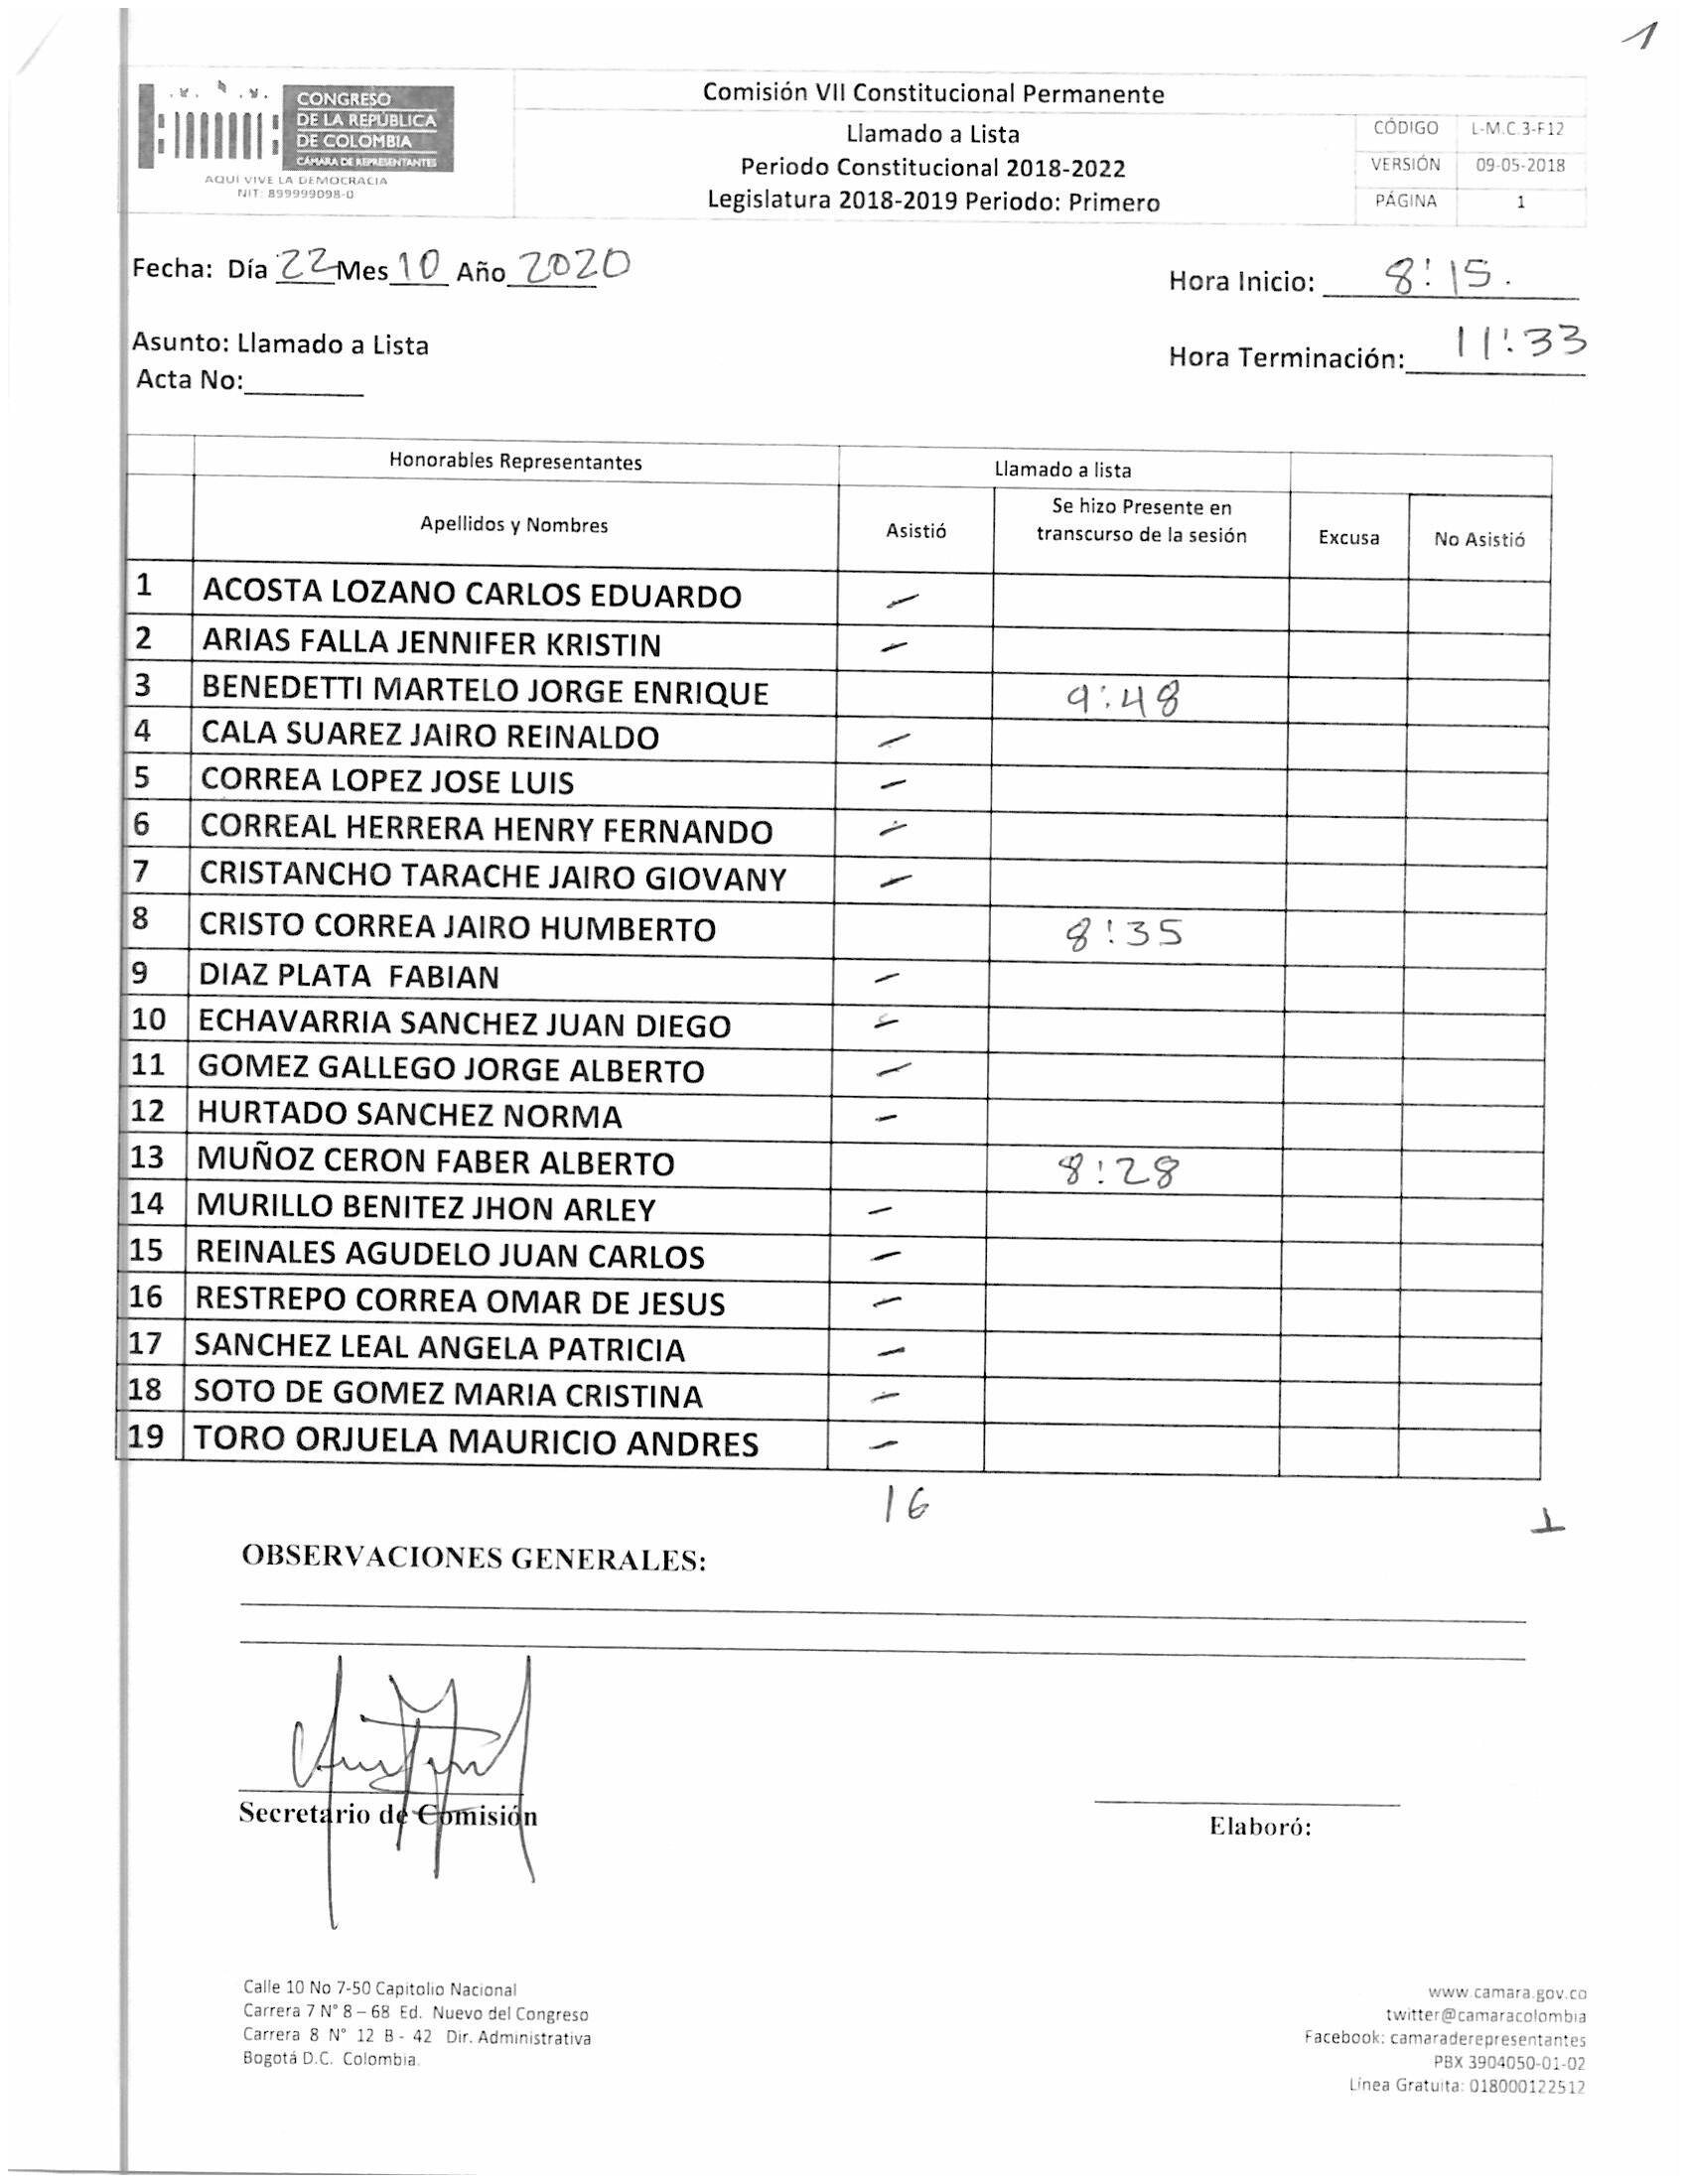 1
CONGRESO
DE LA REPÚBLICA
DE COLOMBIA
CÁMARA DE REPRESENTANTES
AQUÍ VIVE LA DEMOCRACIA
NIT: 899999098-0
Comisión VII Constitucional Permanente
Llamado a Lista
Periodo Constitucional 2018-2022
Legislatura 2018-2019 Periodo: Primero
CÓDIGO L-M.C.3-F12
VERSIÓN 09-05-2018
PÁGINA 1
Fecha: Día 22 Mes 10 Año 2020
Hora Inicio: 8:15.
Asunto: Llamado a Lista
Hora Terminación: 11:33
Acta No:
Honorables Representantes Llamado a lista
Apellidos y Nombres Asistió Se hizo Presente en transcurso de la sesión Excusa No Asistió
1 ACOSTA LOZANO CARLOS EDUARDO –
2 ARIAS FALLA JENNIFER KRISTIN –
3 BENEDETTI MARTELO JORGE ENRIQUE 9:48
4 CALA SUAREZ JAIRO REINALDO –
5 CORREA LOPEZ JOSE LUIS –
6 CORREAL HERRERA HENRY FERNANDO –
7 CRISTANCHO TARACHE JAIRO GIOVANY –
8 CRISTO CORREA JAIRO HUMBERTO 8:35
9 DIAZ PLATA FABIAN –
10 ECHAVARRIA SANCHEZ JUAN DIEGO –
11 GOMEZ GALLEGO JORGE ALBERTO –
12 HURTADO SANCHEZ NORMA –
13 MUÑOZ CERON FABER ALBERTO 8:28
14 MURILLO BENITEZ JHON ARLEY –
15 REINALES AGUDELO JUAN CARLOS –
16 RESTREPO CORREA OMAR DE JESUS –
17 SANCHEZ LEAL ANGELA PATRICIA –
18 SOTO DE GOMEZ MARIA CRISTINA –
19 TORO ORJUELA MAURICIO ANDRES –
16
1
OBSERVACIONES GENERALES:
Secretario de Comisión
Elaboró:
Calle 10 No 7-50 Capitolio Nacional
Carrera 7 N° 8 – 68 Ed. Nuevo del Congreso
Carrera 8 N° 12 B - 42 Dir. Administrativa
Bogotá D.C. Colombia.
www.camara.gov.co
twitter@camaracolombia
Facebook: camaraderepresentantes
PBX 3904050-01-02
Línea Gratuita: 018000122512